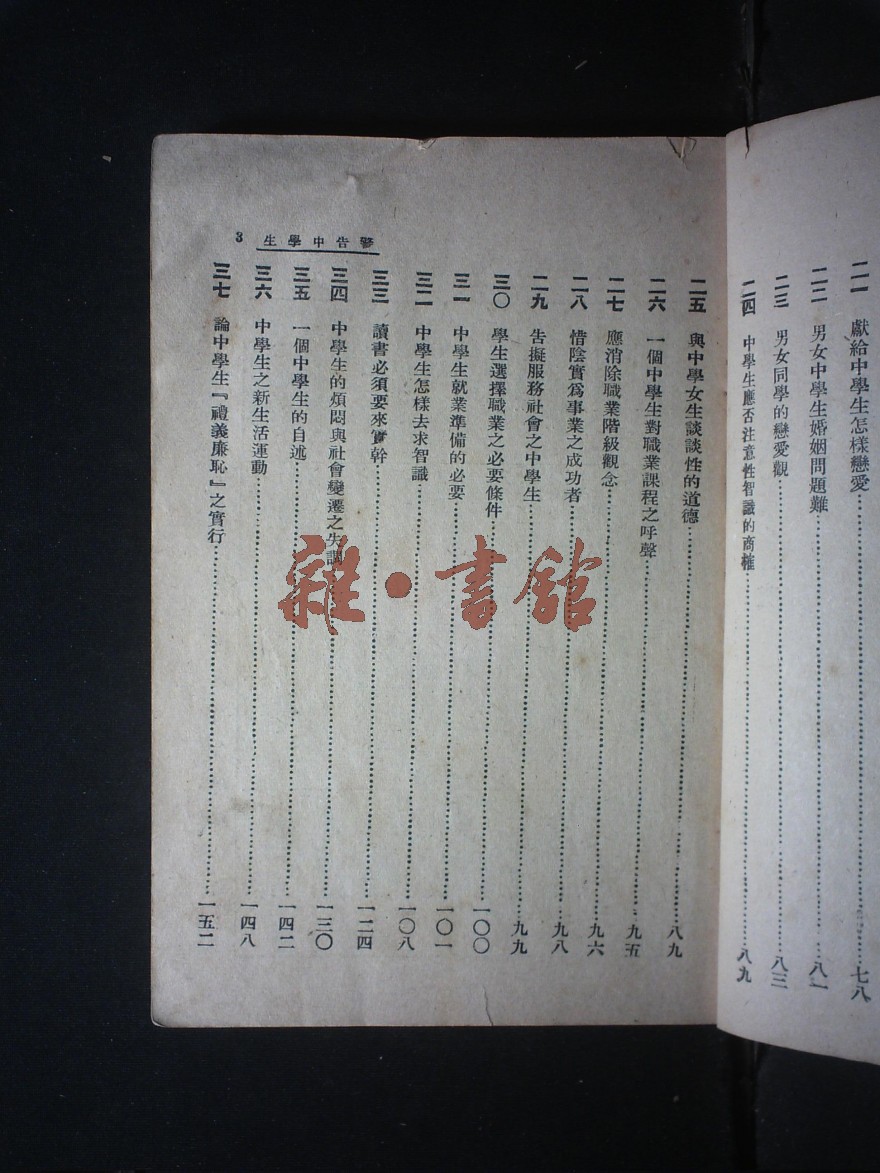 二一 獻給中學生怎樣戀愛 七八
二二 男女中學生婚姻問題難 八一
二三 男女同學的戀愛觀 八三
二四 中學生應否注意性智識的商榷 八九
警告中學生 3
二五 與中學女生談談性的道德 八九
二六 一個中學生對職業課程之呼聲 九五
二七 應消除職業階級觀念 九六
二八 惜陰實爲事業之成功者 九八
二九 告擬服務社會之中學生 九九
三〇 學生選擇職業之必要條件 一〇〇
三一 中學生就業準備的必要 一〇一
三二 中學生怎樣去求智識 一〇八
三三 讀書必須要來實幹 一二四
三四 中學生的煩悶與社會變遷之失調 一三〇
三五 一個中學生的自述 一四二
三六 中學生之新生活運動 一四八
三七 論中學生『禮義廉恥』之實行 一五二
雜·書館